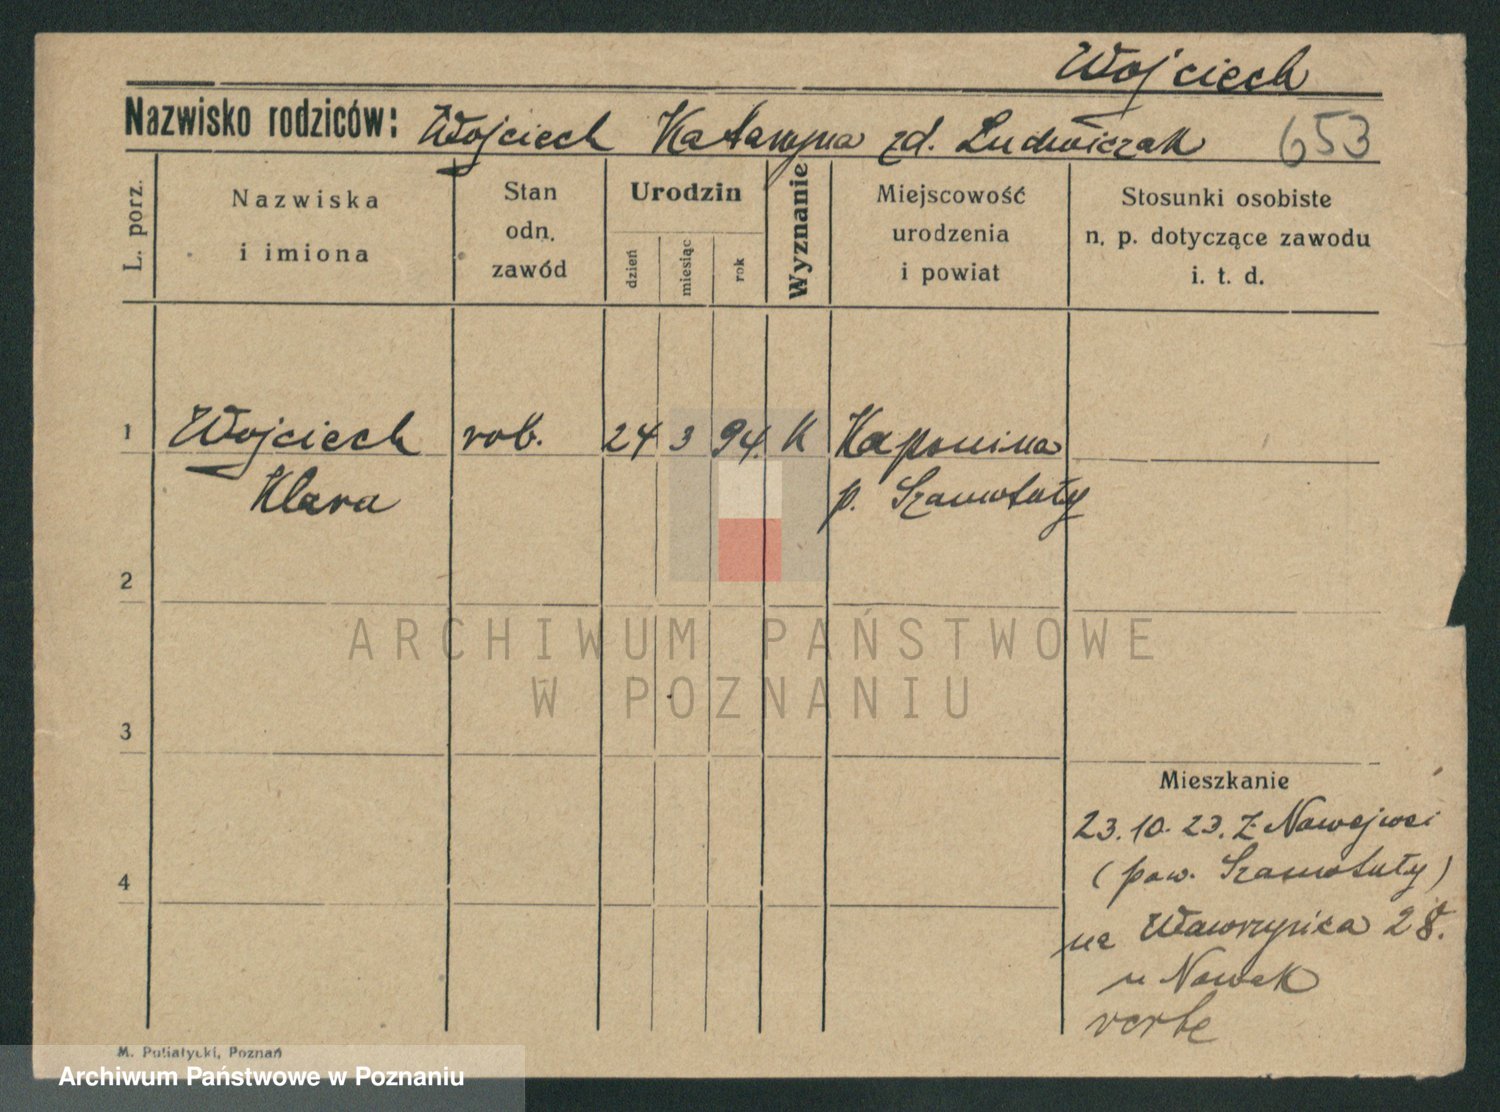 Wojciech
Nazwisko rodziców: Wojciech Katarzyna zd. Ludwiczak 653
L. porz.
Nazwiska
i imiona
Stan
odn.
zawód
Urodzin
dzień
miesiąc
rok
Wyznanie
Miejscowość
urodzenia
i powiat
Stosunki osobiste
n. p. dotyczące zawodu
i. t. d.
1 Wojciech rob. 24 3 94. K
Klara p. Szamotuły
2
ARCHIWUM PAŃSTWOWE
W POZNANIU
3
Mieszkanie
23.10.23. z Nowejwsi
4 (pow. Szamotuły)
na Wawrzyńca 28.
u Nowak
M. Putiatycki, Poznań
Archiwum Państwowe w Poznaniu